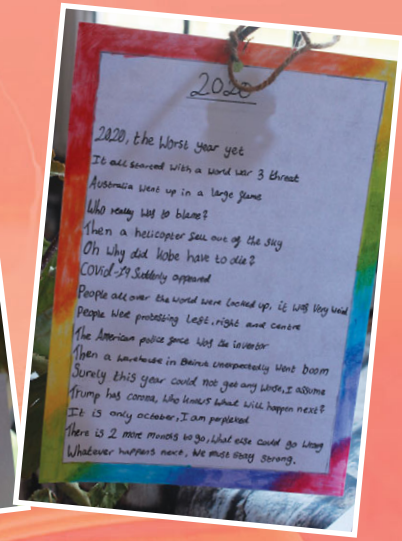 2020
2020, the Worst year yet
It all started with a world war 3 threat
Australia went up in a large flame
Who really was to blame?
Then a helicopter fell out of the sky
Oh why did Kobe have to die?
Covid-19 Suddenly appeared
People all over the world were locked up, it was very weid
People wee protesting left, right and centre
The American police force was the inventor
Then a warehouse in Beirut unexpectedly went boom
Surely this year could not get any worse, I assume
Trump has corona, who knows what will happen next?
It is only october, I am perplexed
There is 2 more months to go, what else could go wrong
Whatever happens next, we must stay strong.